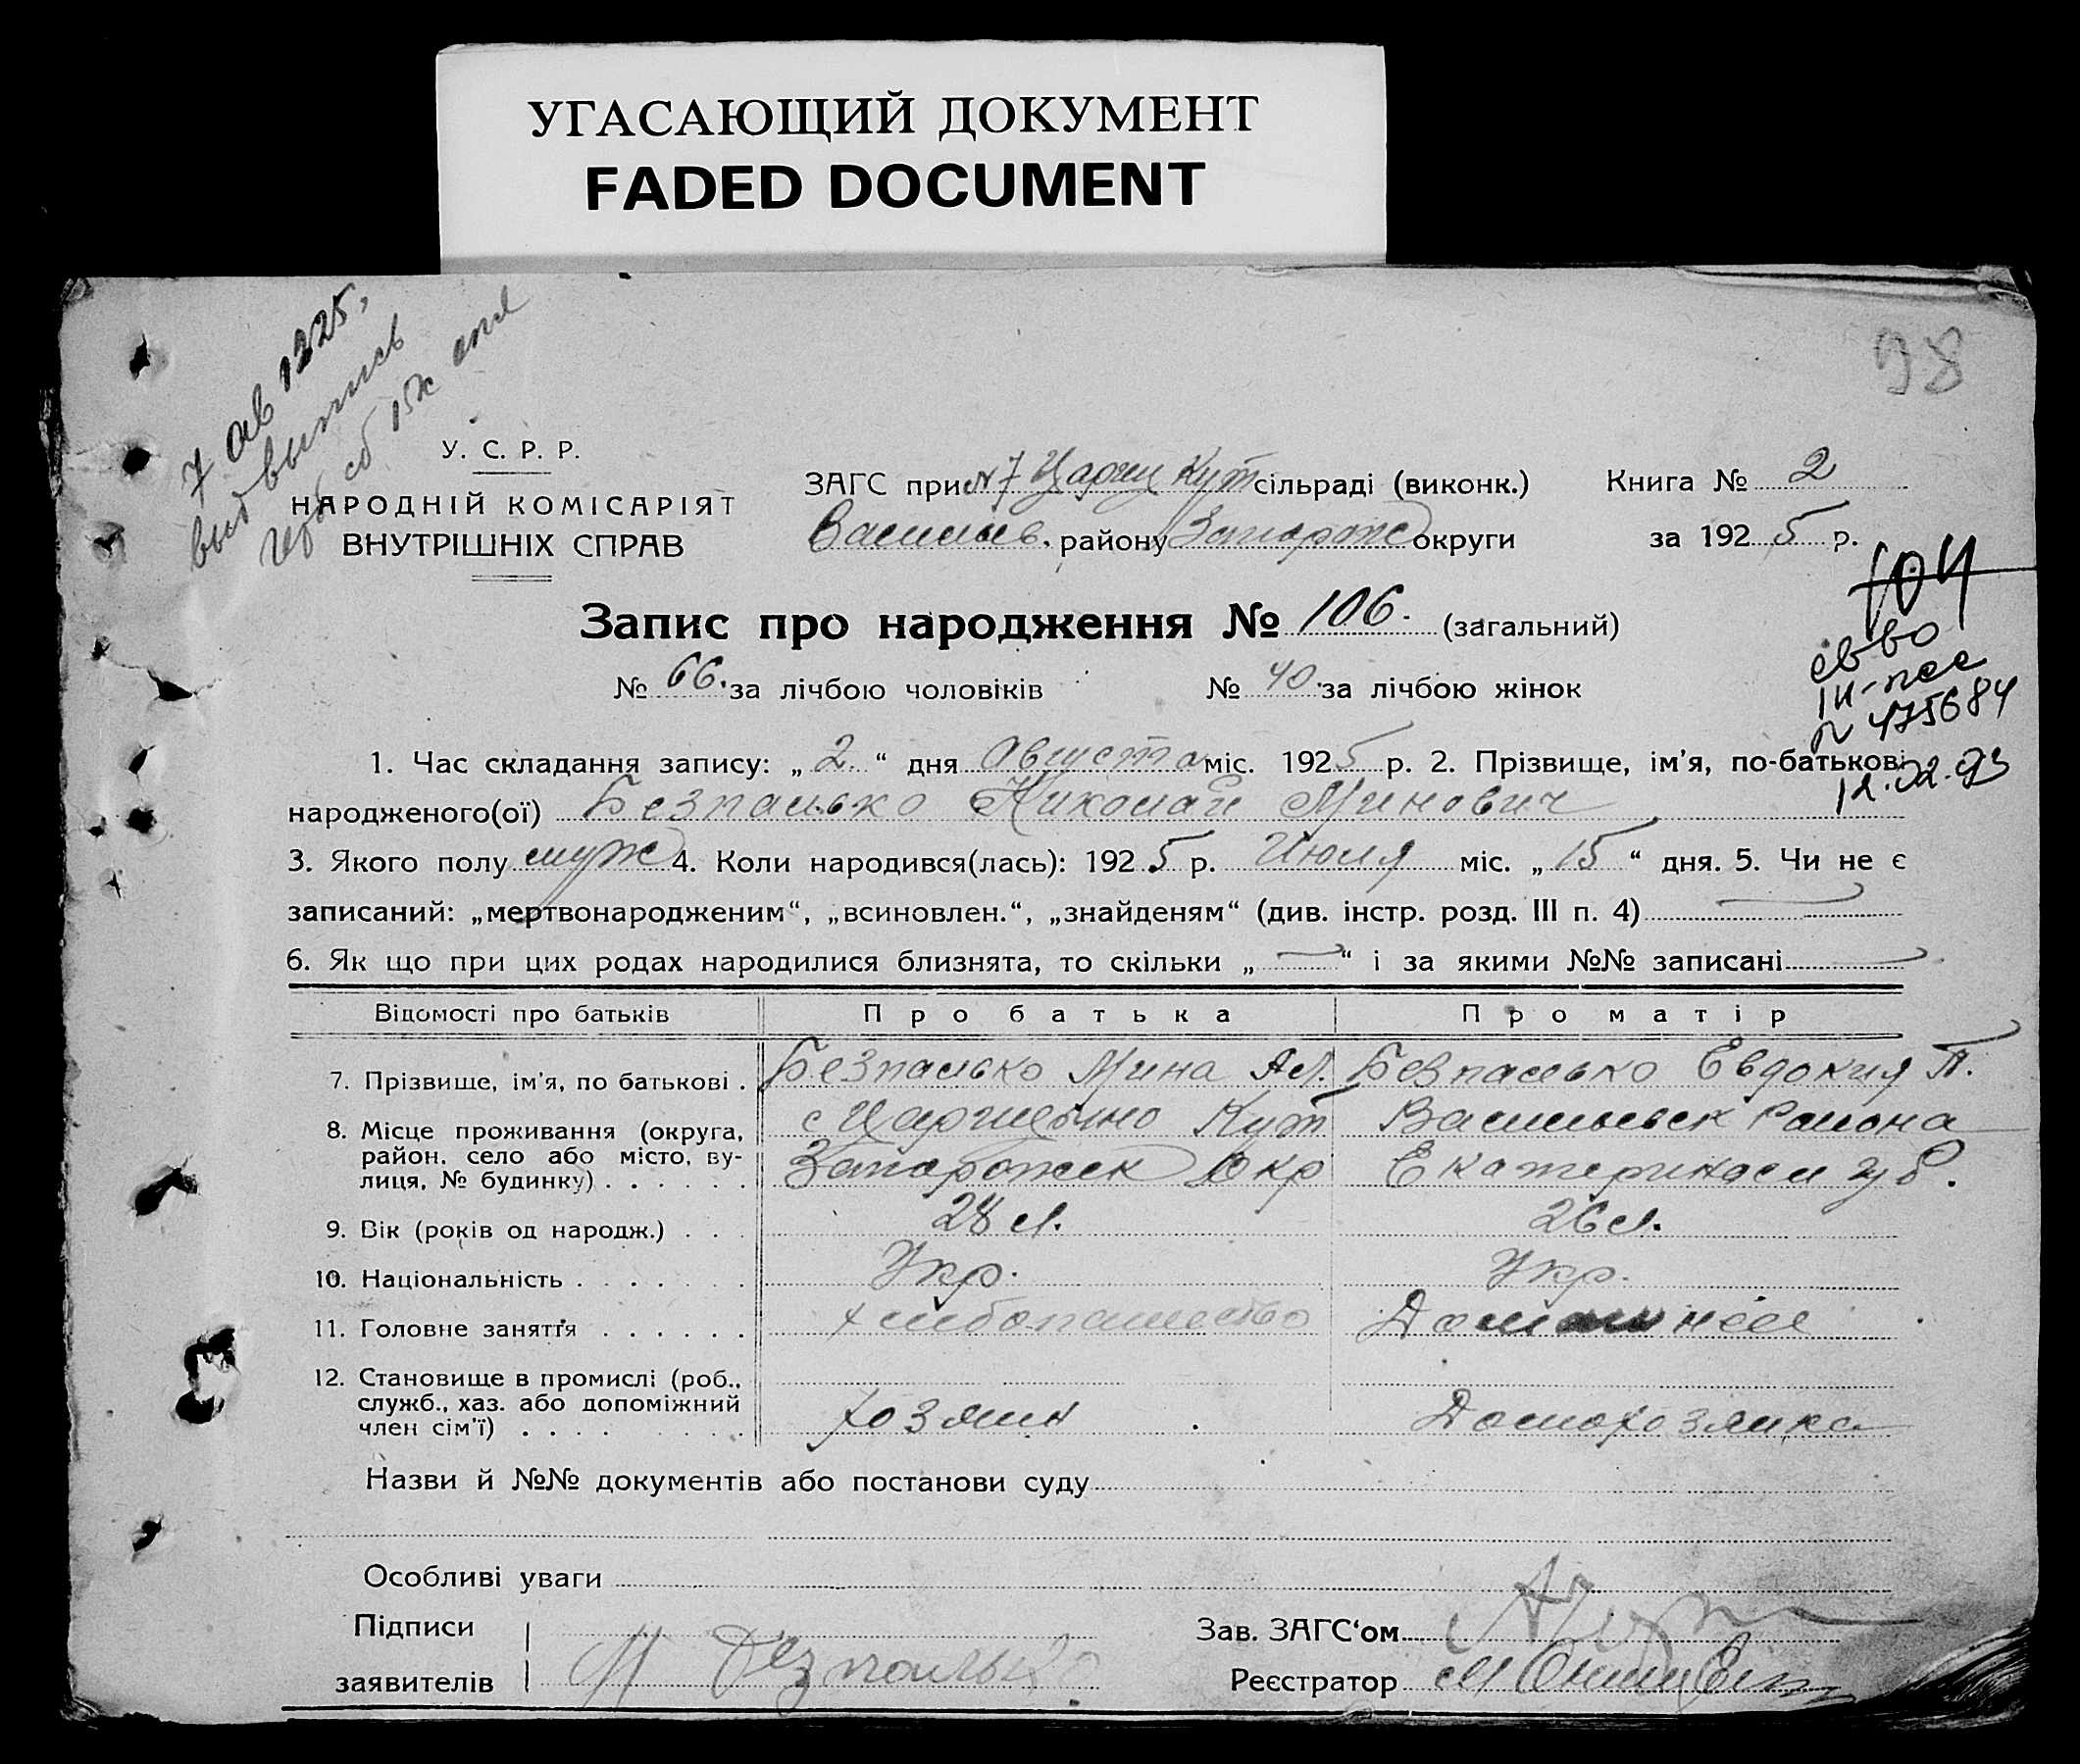 УГАСАЮЩИЙ ДОКУМЕНТ
FADED DOCUMENT
98
7 ав 1925,
выд выпись
У. С. Р. Р.
НАРОДНІЙ КОМІСАРІЯТ
ВНУТРІШНІХ СПРАВ
ЗАГС при №7 Цариц Кут сільраді (виконк.)
Васильев. району Запорож округи
Книга № 2
за 1925 р.
104
св-во
№ 475684
12.02.93
Запис про народження № 106. (загальний)
№ 66. за лічбою чоловіків № 40. за лічбою жінок
1. Час складання запису: „2.“ дня Августа міс. 1925 р. 2. Прізвище, ім'я, по-батькові
народженого(ої) Безпалько Николай Минович
3. Якого полу муж 4. Коли народився(лась): 1925 р. Июля міс. „15“ дня. 5. Чи не є
записаний: „мертвонародженим“, „всиновлен.“, „знайденям“ (див. інстр. розд. III п. 4) —
6. Як що при цих родах народилися близнята, то скільки „—“ і за якими №№ записані —
Відомості про батьків Про батька Про матір
7. Прізвище, ім'я, по батькові . Безпалько Мина Ал. Безпалько Евдокия П.
8. Місце проживання (округа, с Царицыно Кут Васильевск Района
район, село або місто, ву-
лиця, № будинку) . . . . . . Запорожск Окр Екатериносл губ.
9. Вік (років од народж.) . . . 28 л. 26 л.
10. Національність . . . . . . . Укр. Укр.
11. Головне заняття . . . . . . хлебопашество Домашнее
12. Становище в промислі (роб.,
служб., хаз. або допоміжний хозяин Домохозяйка
член сім'ї) . . . .
Назви й №№ документів або постанови суду
Особливі уваги
Підписи
заявителів М Безпалько
Зав. ЗАГС'ом
Реєстратор